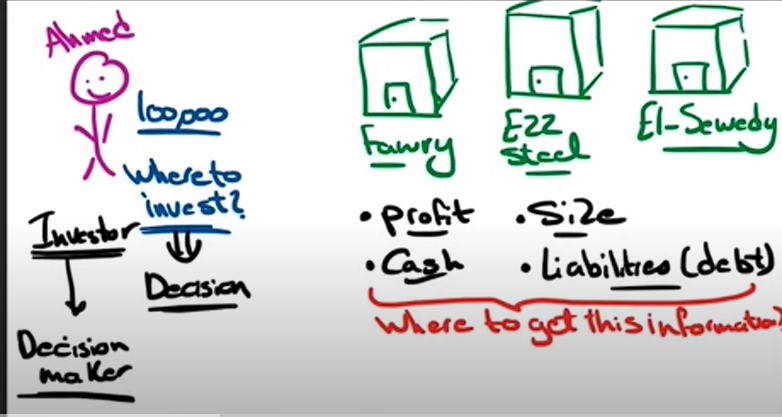 Ahmed
100,000
Where to
invest?
Investor
Decision
Decision
maker
Fawry
Ezz
Steel
El-Sewedy
• Profit
• Size
• Cash
• Liabilities (debt)
Where to get this information?